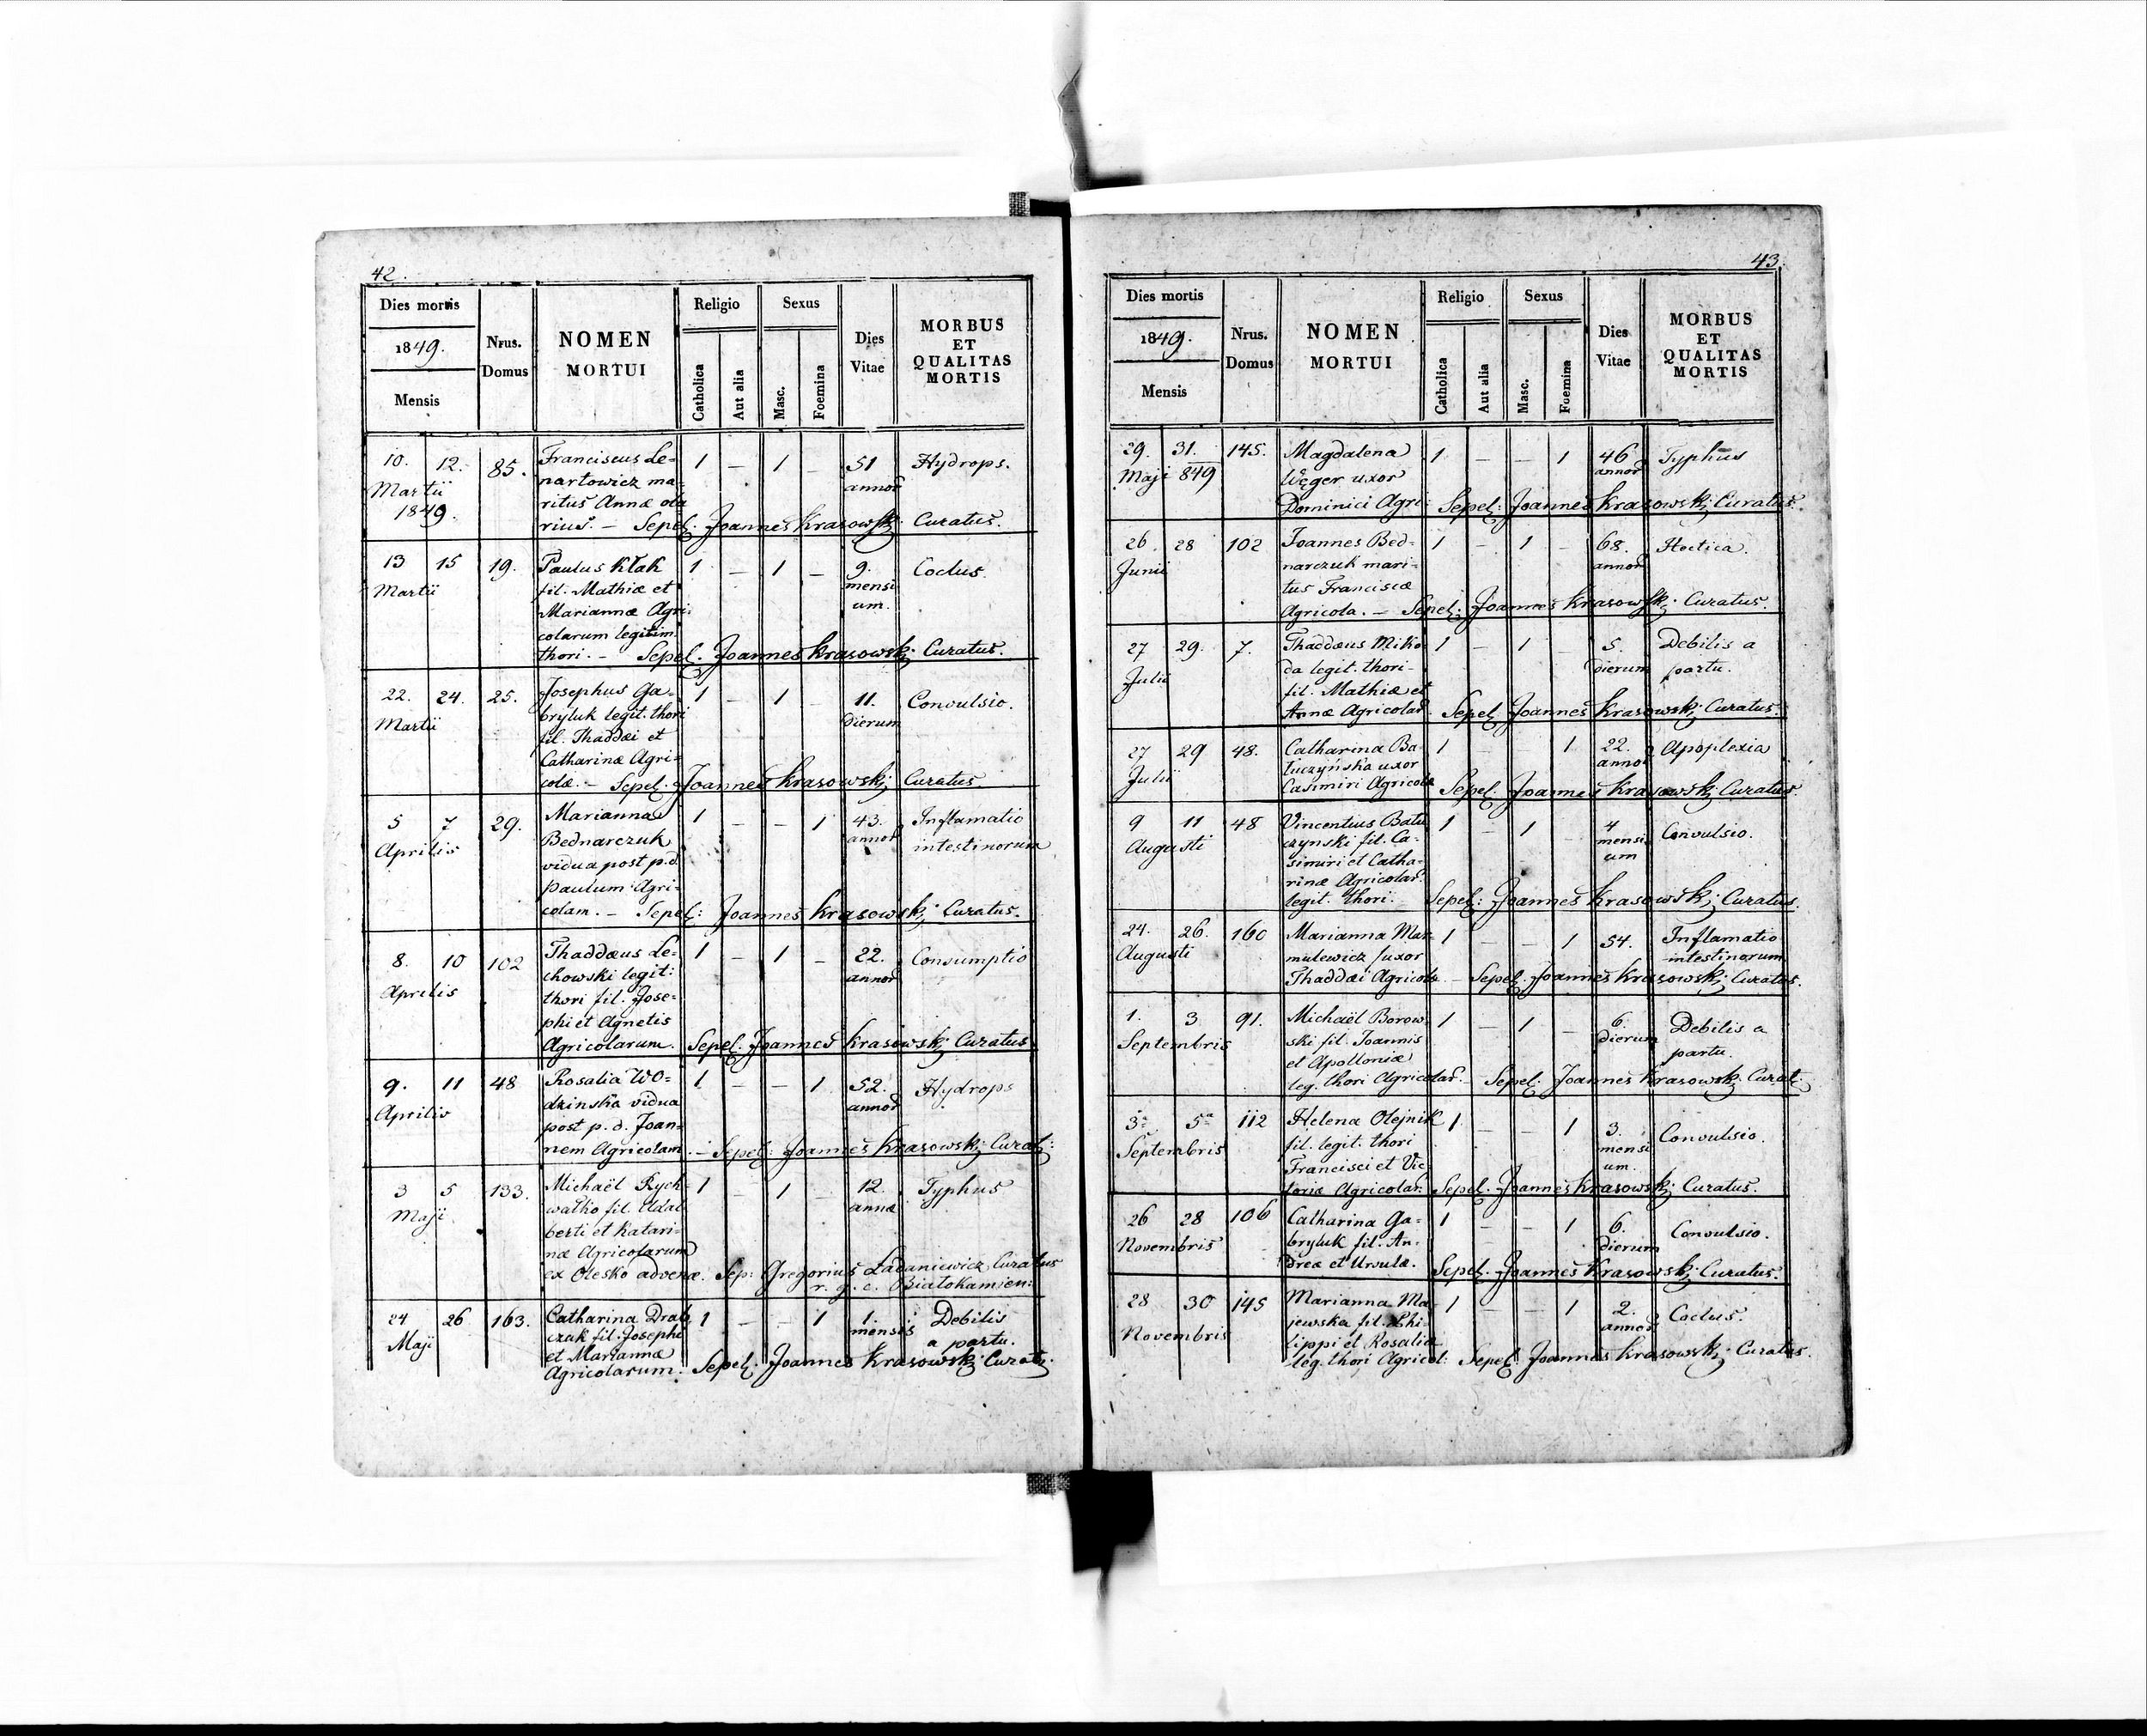 42.
Dies mortis
1849.
Mensis
Nrus. Domus
NOMEN MORTUI
Religio
Catholica
Aut alia
Sexus
Masc.
Foemina
Dies Vitae
MORBUS ET QUALITAS MORTIS
10. 12. 85. Franciscus Le= 1 — 1 — 51 Hydrops.
Martii nartowicz ma= annor
1849. ritus Annæ ola
rius. — Sepel. Joannes Krasowski Curatus.
13 15 19. Paulus Kłak 1 — 1 — 9. Coclus.
Martii fil. Mathiæ et mensi
Mariannæ Agri= um.
colarum legitim.
thori. — Sepel. Joannes Krasowski Curatus.
22. 24. 25. Josephus Ga= 1 — 1 — 11. Convulsio.
Martii bryluk legit. thori dierum
fil. Thaddæi et
Catharinæ Agri=
colæ. — Sepel. Joannes Krasowski Curatus.
5 7 29. Marianna 1 — — 1 43. Inflamatio
Aprilis Bednarczuk annor intestinorum
vidua post p. d.
Paulum Agri=
colam. — Sepel: Joannes Krasowski Curatus.
8. 10 102 Thaddæus Le= 1 — 1 — 22. Consumptio
Aprilis chowski legit: annor
thori fil. Jose=
phi et Agnetis
Agricolarum. Sepel. Joannes Krasowski Curatus
9. 11 48 Rosalia Wo= 1 — — 1 52. Hydrops
Aprilis dzińska vidua annor
post p. d. Joan=
nem Agricolam. — Sepel: Joannes Krasowski Curat:
3 5 133. Michaël Rych= 1 — 1 — 12. Typhus
Maji. walko fil. Adal annor
berti et Katari=
næ Agricolarum
ex Olesko advenæ. Sep: Gregorius Ladaniewicz Curatus
r. g. c. Białokamien:
24 26 163. Catharina Drab 1 — — 1 1. Debilis
Maji czak fil. Josephi mensis a partu.
et Marianna
Agricolarum. Sepel: Joannes Krasowski Curat:
43.
Dies mortis
1849.
Mensis
Nrus. Domus
NOMEN MORTUI
Religio
Catholica
Aut alia
Sexus
Masc.
Foemina
Dies Vitae
MORBUS ET QUALITAS MORTIS
29. 31. 145. Magdalena 1 — — 1 46 Typhus
Maji 849 Węger uxor annor
Dominici Agri: Sepel: Joannes Krasowski Curatus.
26. 28 102 Joannes Bed= 1 — 1 — 68. Hectica.
Junii narczuk mari= annor
tus Franciscæ
Agricola. — Sepel: Joannes Krasowski Curatus.
27 29. 7. Thaddæus Miko 1 — 1 — 5. Debilis a
Julii da legit. thori dierum partu.
fil. Mathiæ et
Annæ Agricolar Sepel Joannes Krasowski Curatus.
27 29 48. Catharina Ba 1 — — 1 22. Apoplexia
Julii łuczyńska uxor annor
Casimiri Agricolæ Sepel. Joannes Krasowski Curatus.
9 11 48 Vincentius Bału 1 — 1 — 4 Convulsio.
Augusti czynski fil. Ca= mensi
simiri et Catha= um
rinæ Agricolar.
legit. thori. Sepel: Joannes Krasowski Curatus.
24. 26. 160 Marianna Mar= 1 — — 1 54. Inflamatio
Augusti mulewicz uxor intestinorum
Thaddæi Agricolæ — Sepel: Joannes Krasowski Curatus.
1. 3 91. Michaël Borow= 1 — 1 — 6. Debilis a
Septembris ski fil. Joannis dierum partu.
et Apolloniæ
leg. thori Agricolar. — Sepel: Joannes Krasowski Curat:
3a 5a 112 Helena Olejnik 1 — — 1 3. Convulsio.
Septembris fil. legit. thori mensi
Francisci et Vic um.
toriæ Agricolar. Sepel: Joannes Krasowski Curatus.
26 28 106 Catharina Ga= 1 — — 1 6. Convulsio.
Novembris bryluk fil. An= dierum
dreæ et Ursulæ. Sepel. Joannes Krasowski Curatus.
28 30 145 Marianna Ma 1 — — 1 2. Coclus.
Novembris jewska fil. Phi= annor
lippi et Rosaliæ
leg. thori Agricol: Sepel Joannes Krasowski Curatus.